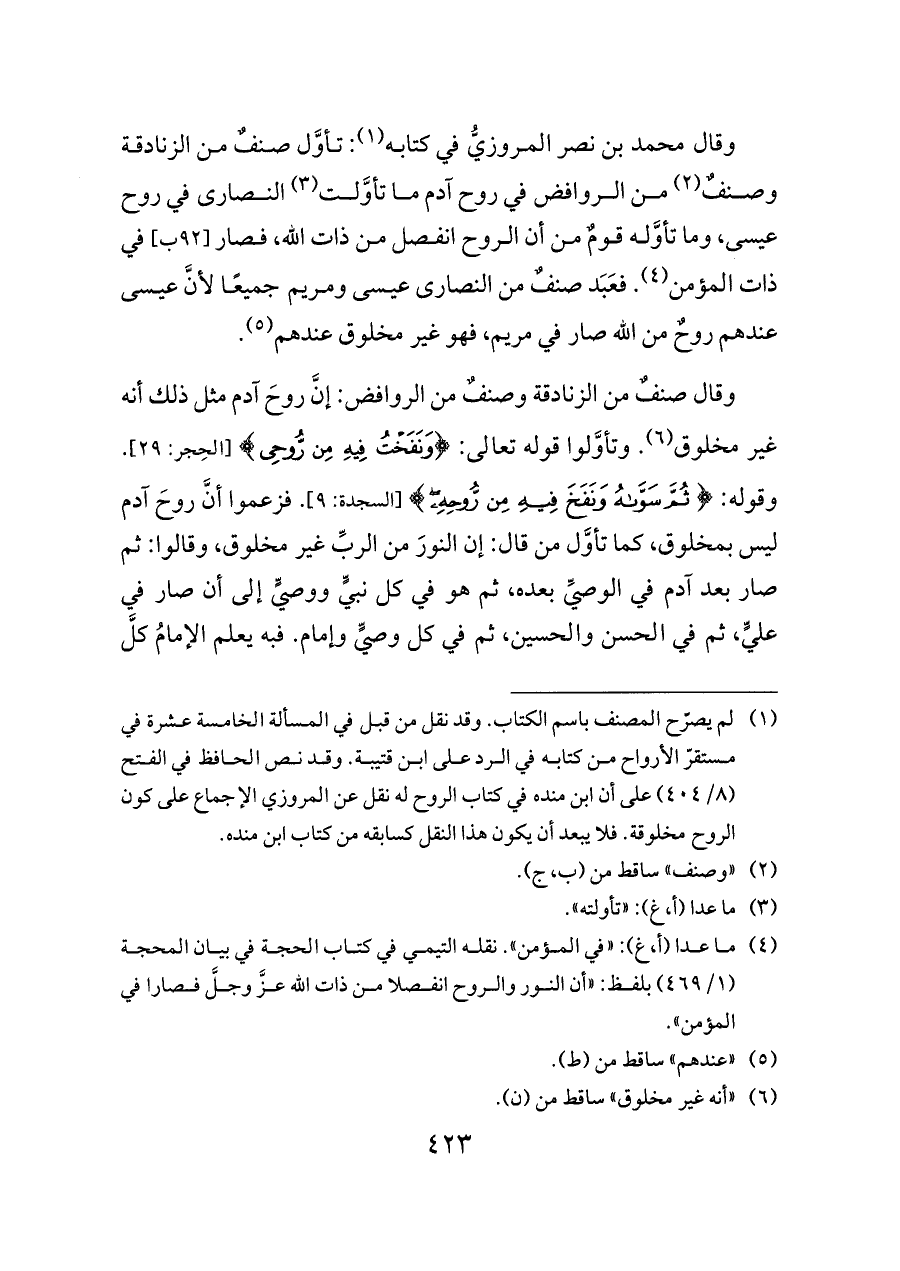 وقال محمد بن نصر المروزيُّ في كتابه(١): تأوَّل صنفٌ من الزنادقة
وصنفٌ(٢) من الروافض في روح آدم ما تأوَّلت(٣) النصارى في روح
عيسى، وما تأوَّله قومٌ من أن الروح انفصل من ذات الله، فصار [٩٢ب] في
ذات المؤمن(٤). فعَبَد صنفٌ من النصارى عيسى ومريم جميعًا لأنَّ عيسى
عندهم روحٌ من الله صار في مريم، فهو غير مخلوق عندهم(٥).
وقال صنفٌ من الزنادقة وصنفٌ من الروافض: إنَّ روحَ آدم مثل ذلك أنه
غير مخلوق(٦). وتأوَّلوا قوله تعالى: ﴿وَنَفَخْتُ فِيهِ مِن رُّوحِى﴾ [الحِجر: ٢٩].
وقوله: ﴿ثُمَّ سَوَّىٰهُ وَنَفَخَ فِيهِ مِن رُّوحِهِۦ﴾ [السجدة: ٩]. فزعموا أنَّ روحَ آدم
ليس بمخلوق، كما تأوَّل من قال: إن النورَ من الربِّ غير مخلوق، وقالوا: ثم
صار بعد آدم في الوصيِّ بعده، ثم هو في كل نبيٍّ ووصيٍّ إلى أن صار في
عليٍّ، ثم في الحسن والحسين، ثم في كل وصيٍّ وإمام. فبه يعلم الإمامُ كلَّ
(١) لم يصرّح المصنف باسم الكتاب. وقد نقل من قبل في المسألة الخامسة عشرة في
مستقرّ الأرواح من كتابه في الرد على ابن قتيبة. وقد نص الحافظ في الفتح
(٨/ ٤٠٤) على أن ابن منده في كتاب الروح له نقل عن المروزي الإجماع على كون
الروح مخلوقة. فلا يبعد أن يكون هذا النقل كسابقه من كتاب ابن منده.
(٢) «وصنف» ساقط من (ب، ج).
(٣) ما عدا (أ، غ): «تأولته».
(٤) ما عدا (أ، غ): «في المؤمن». نقله التيمي في كتاب الحجة في بيان المحجة
(١/ ٤٦٩) بلفظ: «أن النور والروح انفصلا من ذات الله عزَّ وجلَّ فصارا في
المؤمن».
(٥) «عندهم» ساقط من (ط).
(٦) «أنه غير مخلوق» ساقط من (ن).
٤٢٣